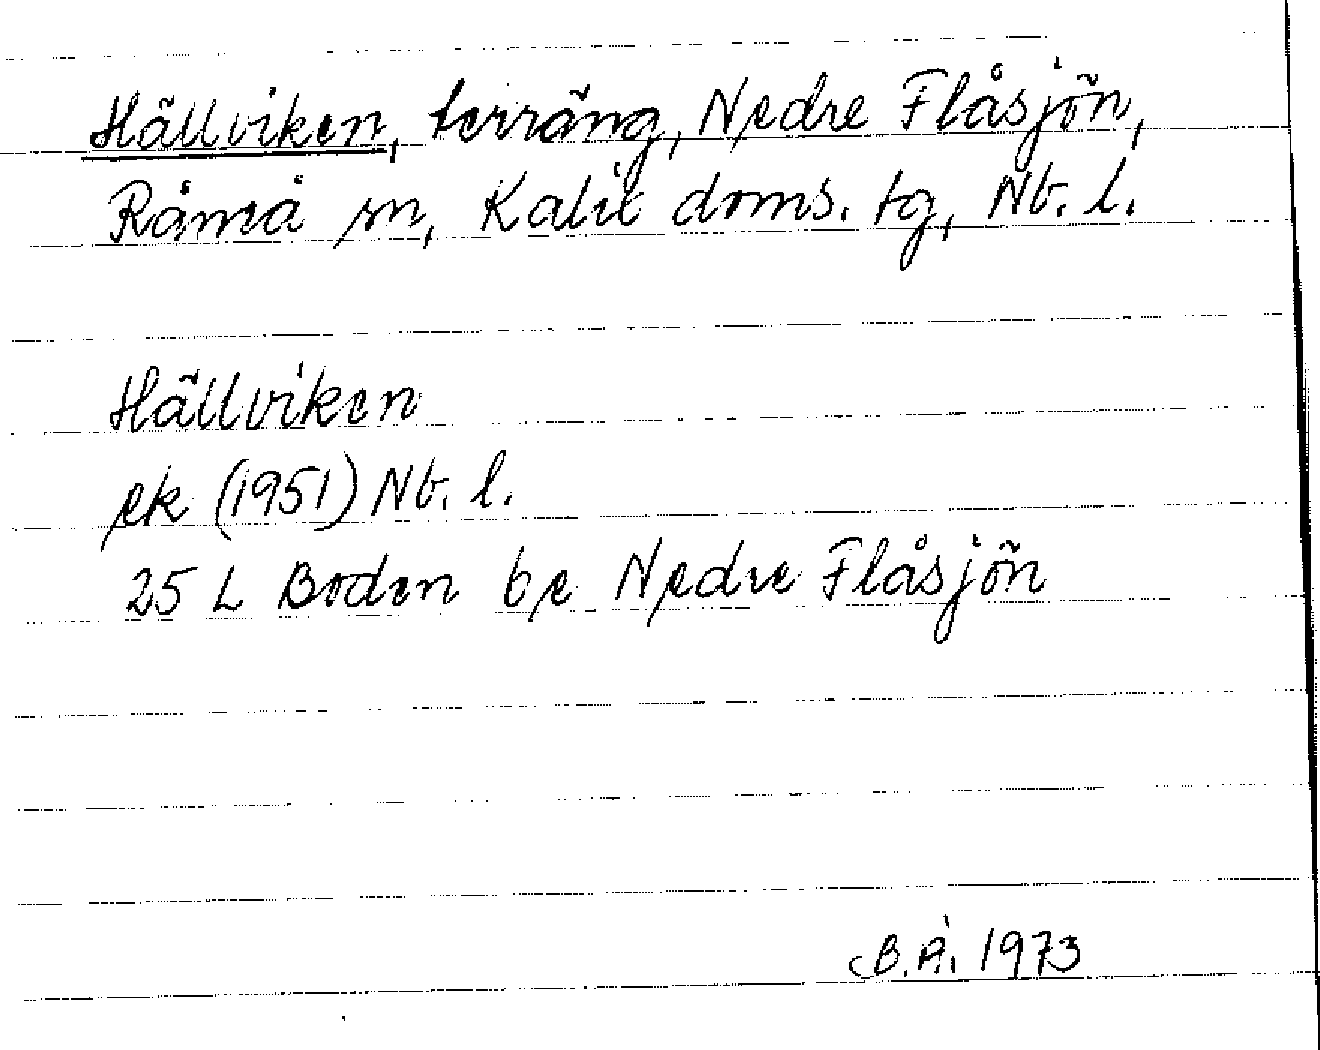 Hällviken, terräng, Nedre Flåsjön,
Råneå sn, Kalix doms. tg, Nb. l.
Hällviken
ek (1951) Nb. l.
25 L Boden 6e Nedre Flåsjön
B.Å. 1973